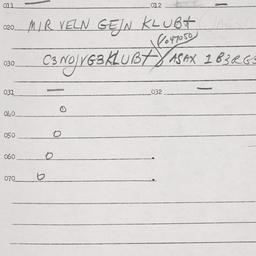 011 012
020 MIR VELN GEJN KLUBT
(047050)
030 C3NOJVG3KLUBT ASAX 1 B3RG3
031 032
040 0
050 0
060 0
070 0